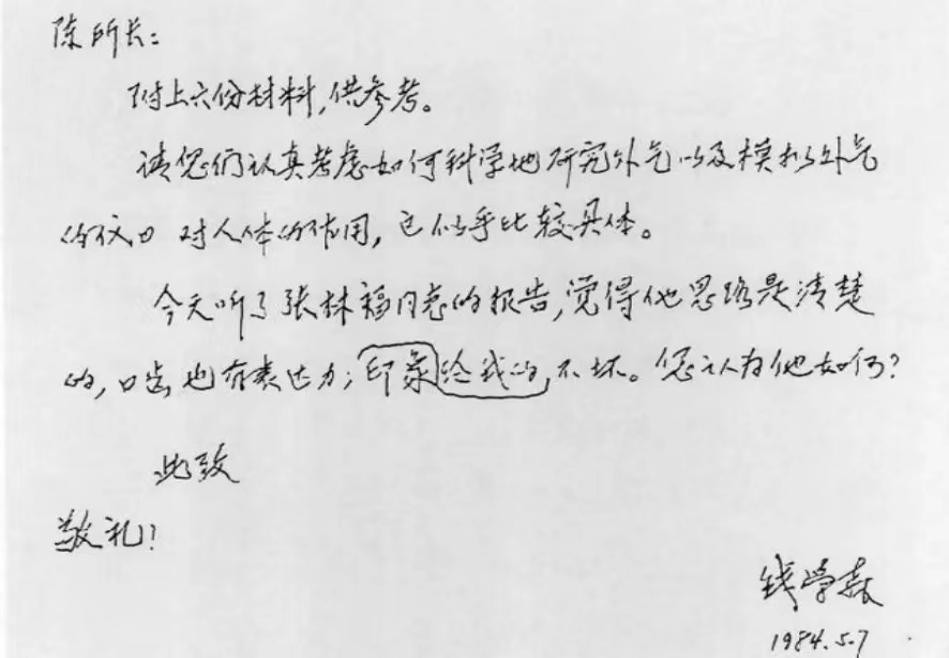 陈所长：
附上六份材料，供参考。
请您们认真考虑如何科学地研究外气以及模拟外气
的仪口 对人体的作用，这似乎比较具体。
今天听了张林福同志的报告，觉得他思路是清楚
的，口齿也有表达力；印象给我的，不坏。您认为他如何？
此致
敬礼！
钱学森
1984.5.7